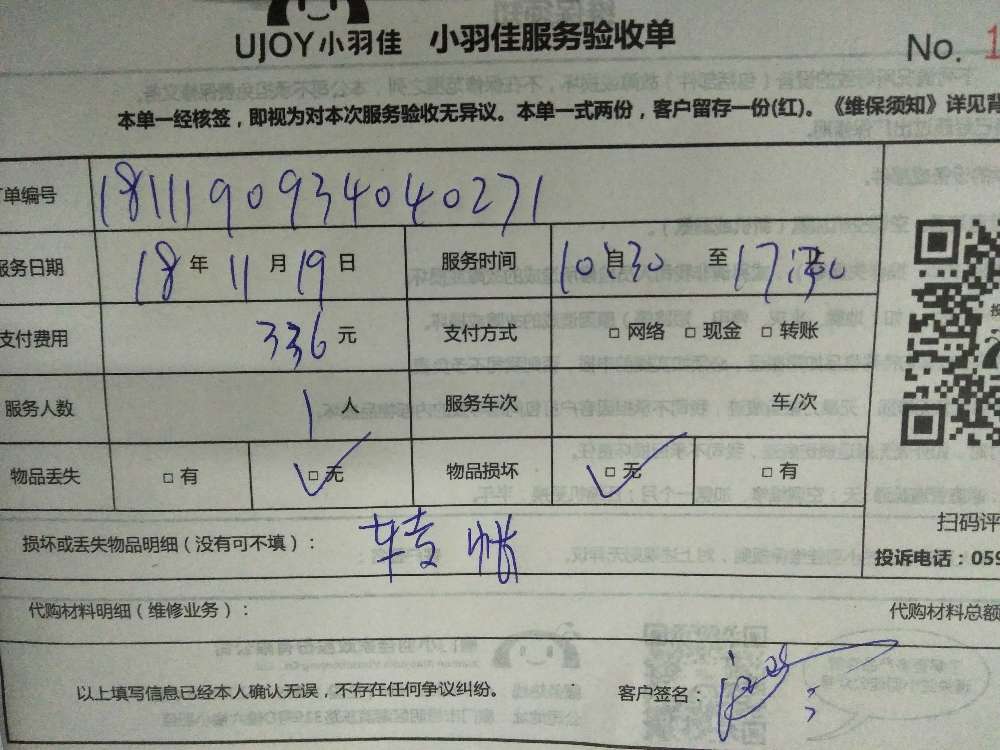 UJOY小羽佳 小羽佳服务验收单 No. 1
本单一经核签，即视为对本次服务验收无异议。本单一式两份，客户留存一份(红)。《维保须知》详见背
订单编号 181119093404027​1
服务日期 18 年 11 月 19 日 服务时间 10 30 至 17:30
支付费用 336 元 支付方式 □ 网络 □ 现金 □ 转账
服务人数 1 人 服务车次 车/次
物品丢失 □ 有 □ 无 物品损坏 □ 无 □ 有
扫码评
损坏或丢失物品明细（没有可不填）： 转帐
投诉电话：059
代购材料明细（维修业务）： 代购材料总额
以上填写信息已经本人确认无误，不存在任何争议纠纷。 客户签名：